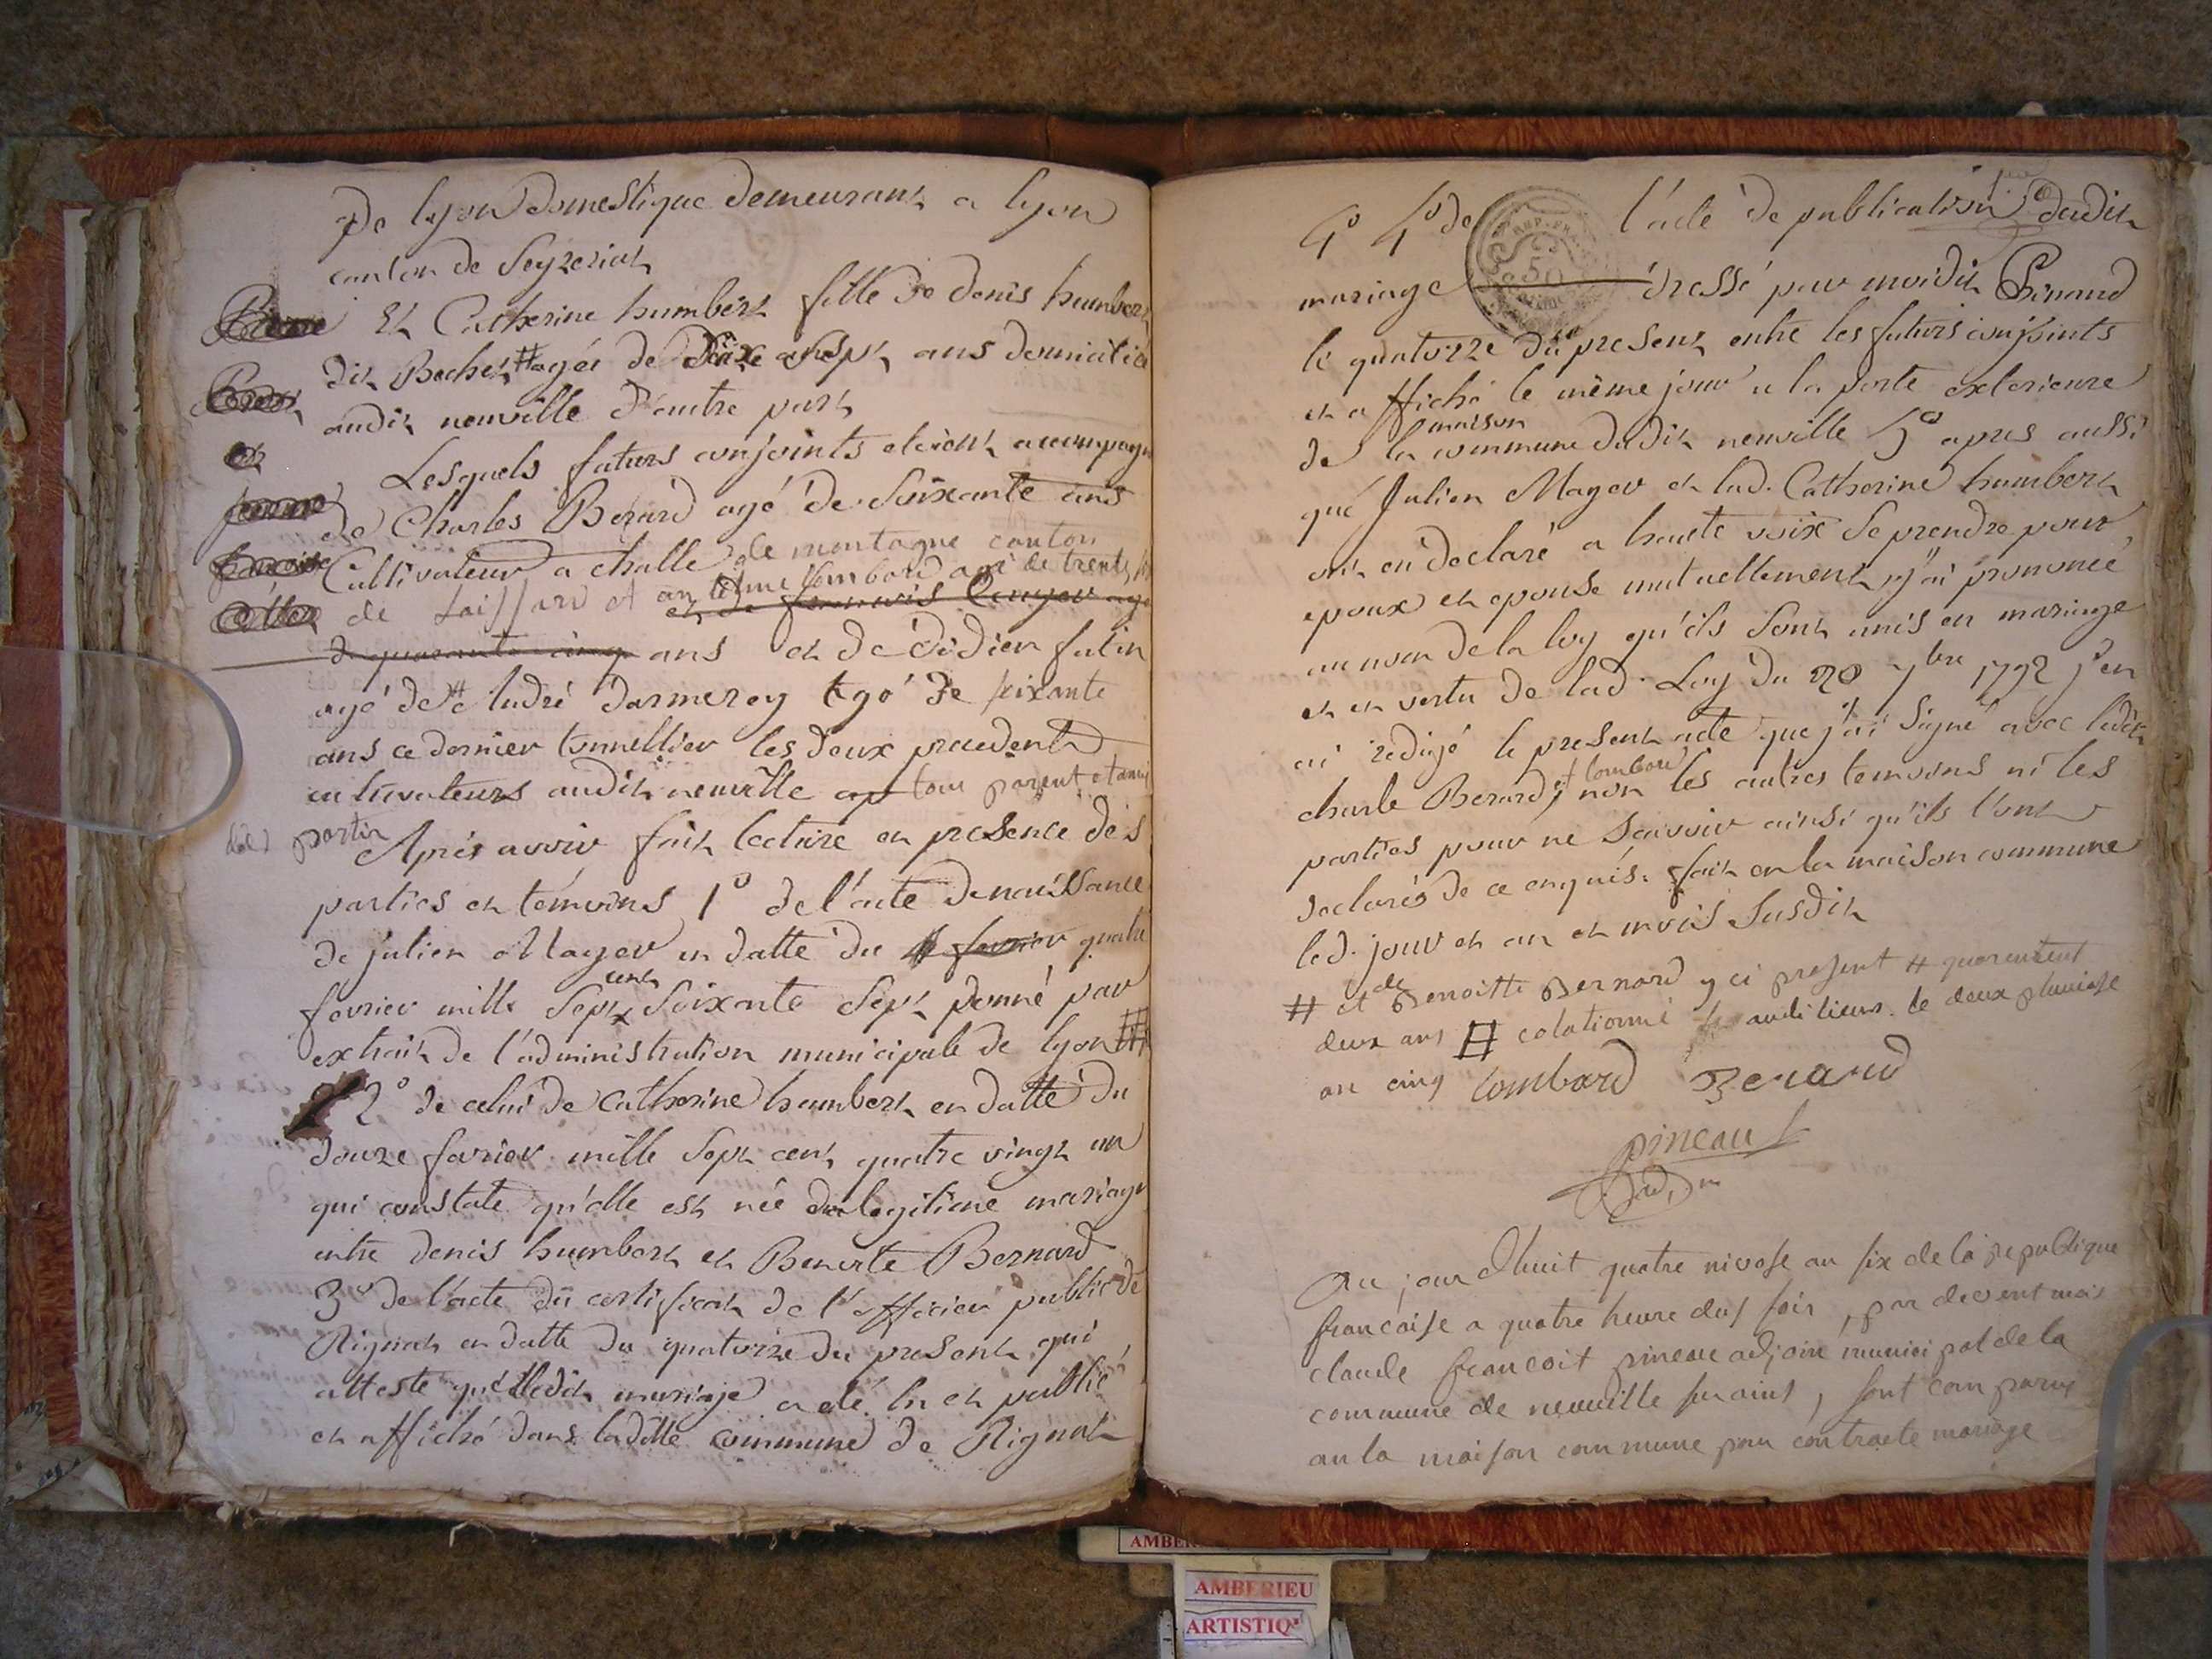 De lyon Domestique demeurant a lyon
canton de Seyzeriat
Et Catherine humbert fille de denis humbert
dit Bochet # agée de Seize a Sept ans domiciliée
audit neuville d'autre part
Lesquels futurs conjoints etoient accompagn
de Charles Berard agé de Soixante ans
Cultivateur a challe de montagne canton
de et antelme lombard agé de trente
ans et de Didier futin
agé de # André darmeroy agé de soixante
ans ce dernier tonnellier les deux precedents
cultivateurs audit neuville tous parent et amis
partie
Après avoir fait lecture en presence des
parties et témoins 1º de l'acte de naissance
de julien Mayer en datte du quatre
fevrier mille Sept cent Soixante Sept donné par
extrait de l'administration municipale de lyon #
2º de celui de Catherine humbert en datte du
douze favrier mille Sept cent quatre vingt un
qui constate qu'elle est née de legitime mariage
entre denis humbert et Benoite Bernard
3º de l'acte du certificat de l'officier public de
Rignat en datte du quatorze du present qui
atteste que ledit mariage a eté lu et publié
et affiché dans laditte commune de Rignat
4º de l'acte de publication dudit
mariage dressé par moidit Pinaud
le quatorze du present entre les futurs conjoints
et affiché le même jour a la porte exterieure
de la maison commune dudit neuville 5º apres aussi
que Julien Mayer et lad. Catherine humbert
ont eu declaré a haute voix Se prendre pour
epoux et epouse mutuellement j'ai prononcé
au nom de la loy qu'ils Sont unis en mariage
et en vertu de lad. Loy du 20 7bre 1792 j'en
ai redigé le present acte que j'ai Signé avec ledit
charle Berard et lombard non les autres temoins ni les
parties pour ne Savoir ainsi qu'ils l'ont
declarés de ce enquis. fait en la maison commune
led. jour et an et mois Susdit
# et de Benoitte Bernard y ci present # quarentent
deux ans # colationné audi lieus le deux pluviose
an cinq lombard Berard
pineau
adj. m
Au jour dhuit quatre nivose an six de la republique
francaise a quatre heure dus soir, par devent moi
claude francoit pineau adjoint municipal de la
commune de neuville sur ains, sont comparus
an la maison commune pour contracte mariage
AMBERIEU
ARTISTIQ